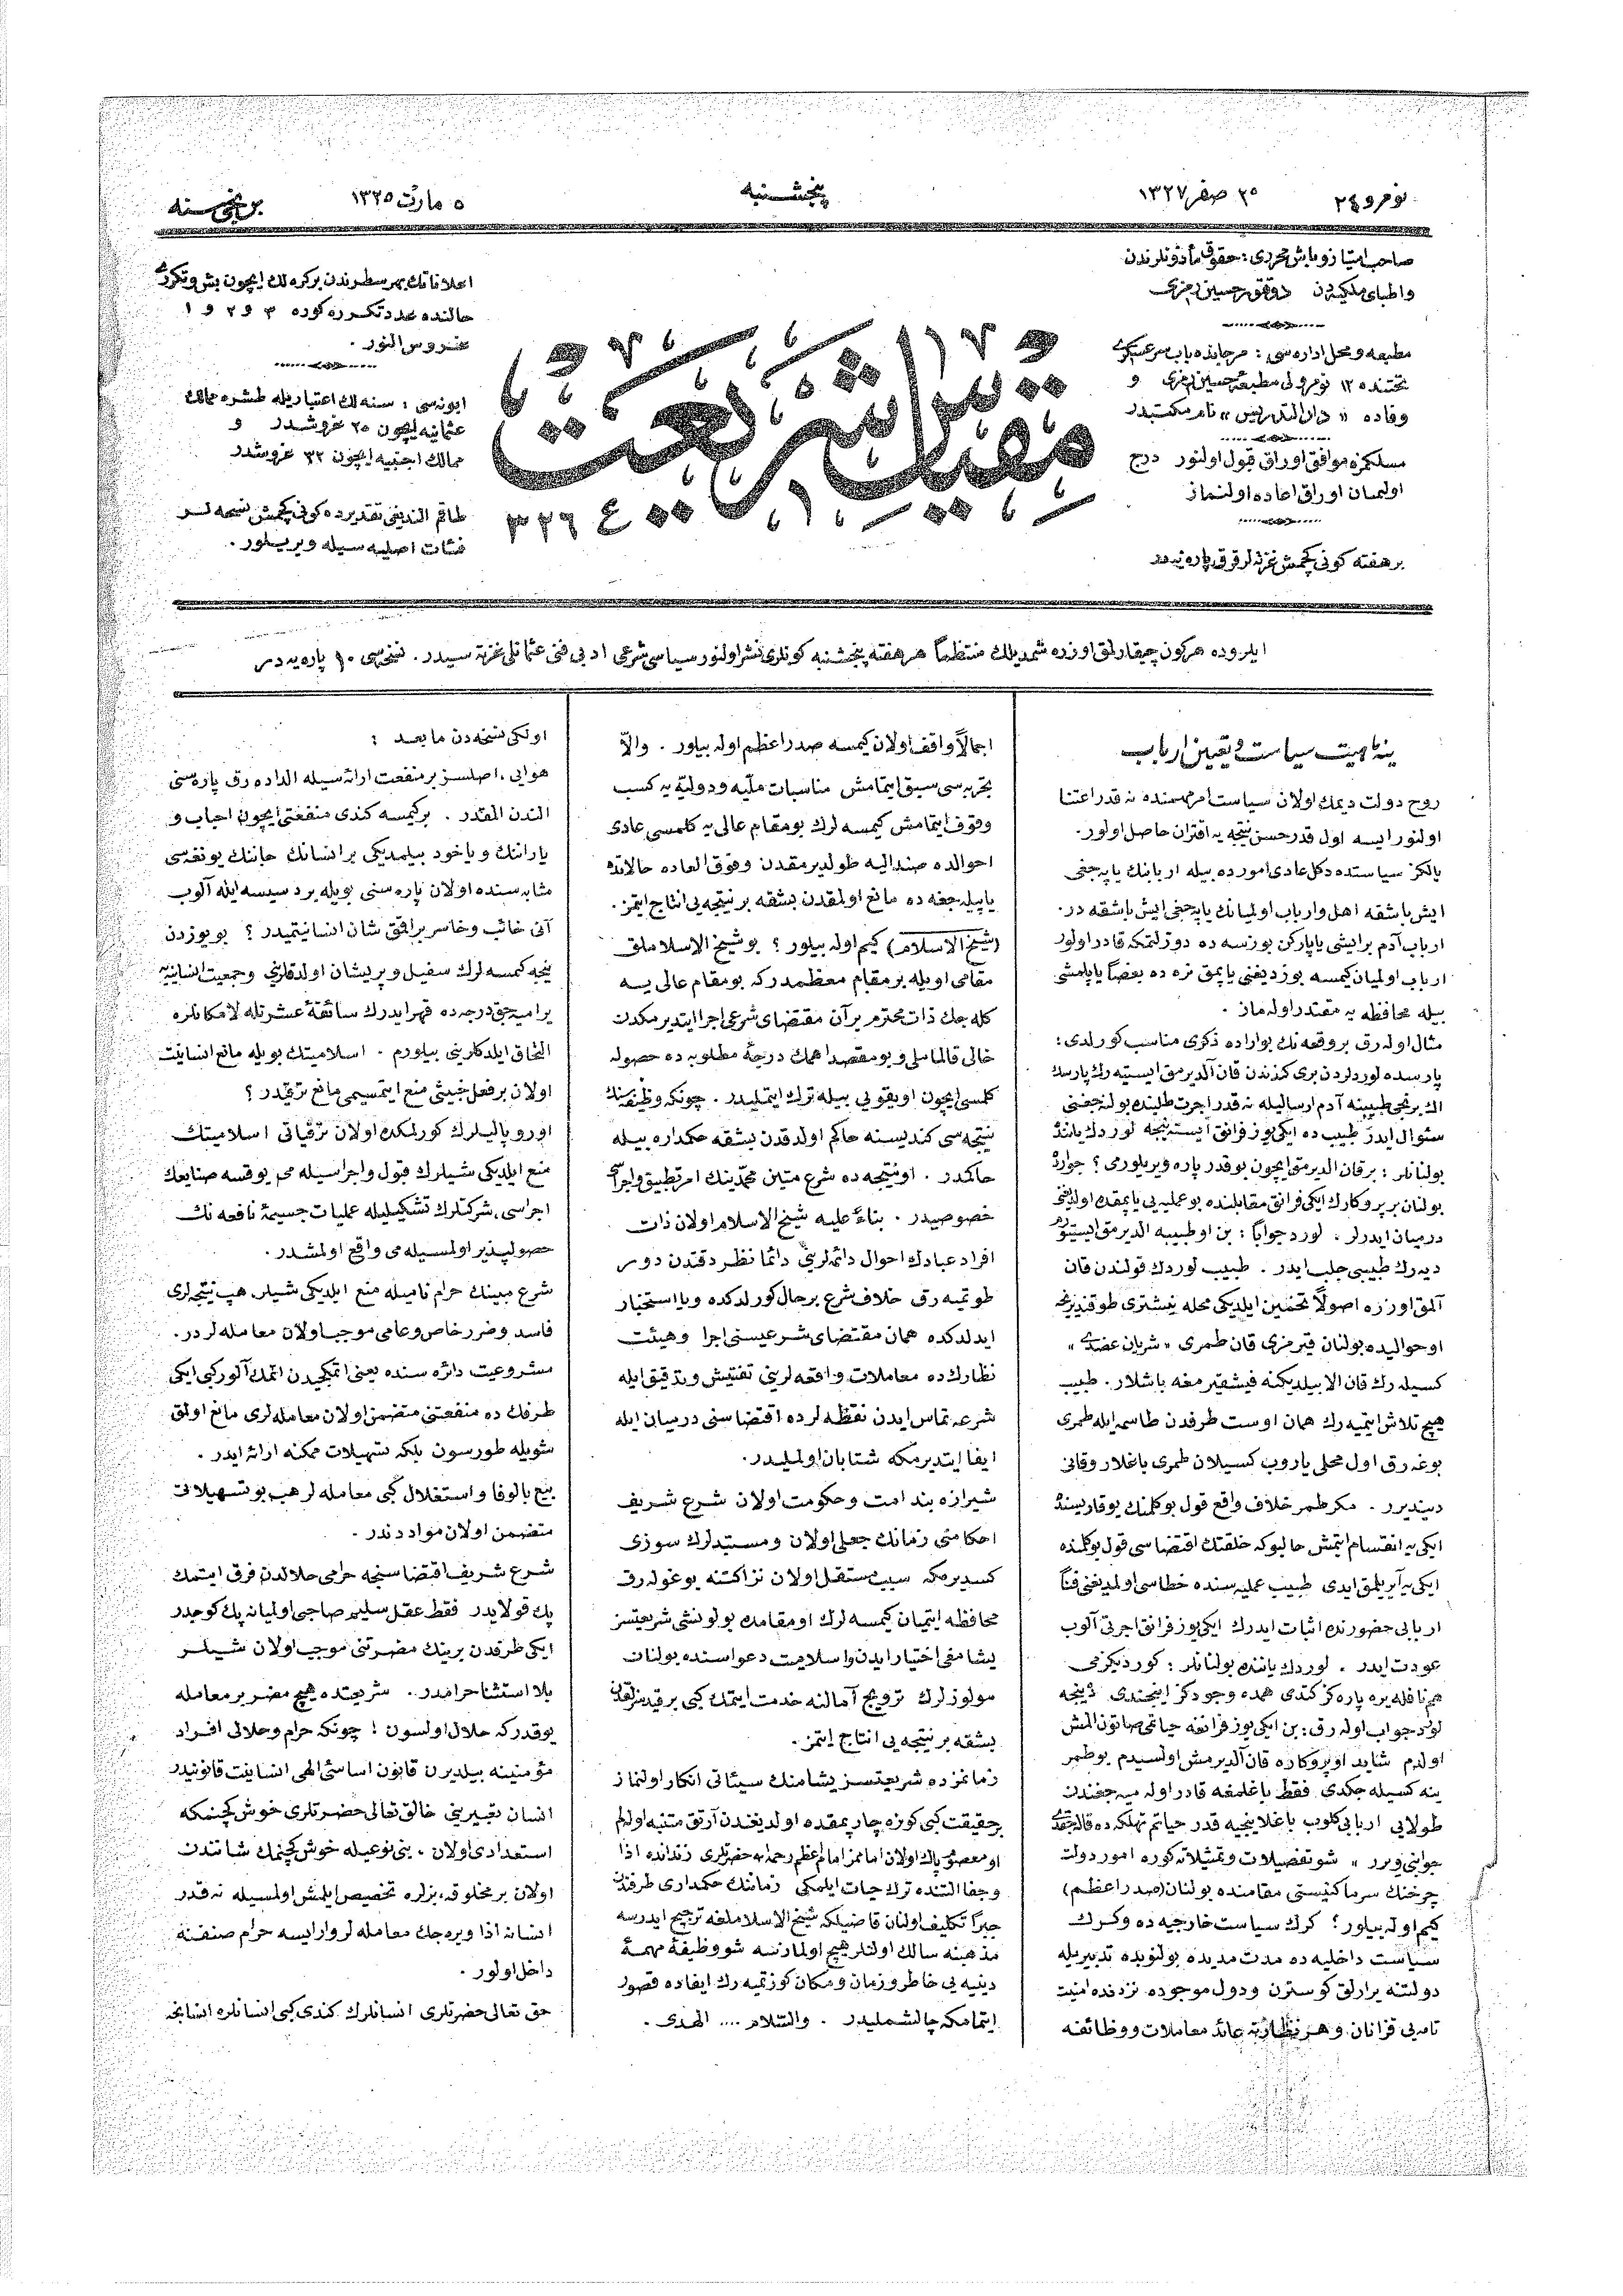 نومرو ٢٤
٢٥ صفر ١٣٢٧
پنجشنبه
٥ مارت ١٣٢٥
برنجی سنه
صاحب امتیاز و باش محرری : حقوق مأذونلرندن
و اطبای ملکیه‌دن دوقتور حسین رمزی
مطبعه و محل اداره‌سی : مرجانده باب سرعسکری
تحتنده ١٢ نومرولی مطبعهٔ حسین رمزی و
وفاده « دار التدریس » نام مکتبدر
مسلکمزه موافق اوراق قبول اولنور درج
اولنمیان اوراق اعاده اولنماز
بر هفته کونی کچمش غزته‌لر قرق پاره‌یه‌در
مقیاس شریعت
٣٢٦
اعلاناتك بهر سطرندن بر کره‌لك ایچون بش و تکرری
حالنده عدد تکرره کوره ٣ و ٢ و ١
غروش النور .
ابونه‌سی : سنه‌لك اعتباریله طشره ممالك
عثمانیه ایچون ٢٥ غروشدر و
ممالك اجنبیه ایچون ٣٢ غروشدر
طاقم الندیغی تقدیرده کونی کچمش نسخه‌لر
فئات اصلیه‌سیله ویریلور .
ایلروده هرکون چیقارلق اوزره شمدیلك منتظماً هر هفته پنجشنبه کونلری نشر اولنور سیاسی شرعی ادبی فنی عثمانلی غزته‌سیدر . نسخه‌سی ١٠ پاره‌یه‌در
ینه اهمیت سیاست و تعیین ارباب
روح دولت دیمك اولان سیاست امر مهمنده نه قدر اعتنا
اولنور ایسه اول قدر حسن نتیجه‌یه اقتران حاصل اولور .
یالکز سیاستده دکل عادی امورده بیله اربابنك یاپه‌جغی
ایش باشقه اهل و ارباب اولمیانك یاپه‌جغی ایش باشقه‌در .
ارباب آدم بر ایشی یاپارکن بوزسه‌ده دوزلتمکه قادر اولور
ارباب اولمیان کیمسه بوزدیغنی یاپمق نره‌ده بعضاً یاپلمشی
بیله محافظه‌یه مقتدر اوله‌ماز .
مثال اوله‌رق بر وقعه‌نك بواراده ذکری مناسب کورلدی :
پارسده لوردلردن بری کندندن قان آلدیرمق ایستیه‌رك پارسك
اك برنجی طبیبنه آدم ارسالیله نه قدر اجرت طلبنده بوله‌جغنی
سئوال ایدر طبیب ده ایکی یوز فرانق ایسته‌ینجه لوردك یاننده
بولنانلر : بر قان الدیرمق ایچون بو قدر پاره ویریلورمی ؟ جوارده
بولنان بر پروکارك ایکی فرانق مقابلنده بو عملیه‌یی یاپمقده اولدیغنی
درمیان ایدرلر . لورد جواباً : بن او طبیبه الدیرمق ایستیورم
دیه‌رك طبیبی جلب ایدر . طبیب لوردك قولندن قان
آلمق اوزره اصولاً تخمین ایلدیکی محله نیشتری طوقندیرنجه
او حوالیده بولنان قیرمزی قان طمری « شریان عضدی »
کسیله‌رك قان الابیلدیکنه فیشقیرمغه باشلار . طبیب
هیچ تلاش ایتمیه‌رك همان اوست طرفدن طاسمه ایله طمری
بوغه‌رق اول محلی یاروب کسیلان طمری باغلار و قانی
دیندیرر . مکر طمر خلاف واقع قول بوکلنك یوقاریسنده
ایکی‌یه انقسام ایتمش حالبوکه خلقتك اقتضاسی قول بوکلنده
ایکی‌یه آیریلمق ایدی طبیب عملیه‌سنده خطاسی اولمدیغنی فناً
اربابی حضورنده اثبات ایدرك ایکی یوز فرانق اجرتی آلوب
عودت ایدر . لوردك یاننده بولنانلر : کوردیکزمی
هم نافله یره پاره‌کز کتدی همده وجودکز اینجندی دینجه
لورد جواب اوله‌رق : بن ایکی یوز فرانغه حیاتمی صاتون المش
اولدم شاید او پروکاره قان آلدیرمش اولسیدم بو طمر
ینه کسیله‌جکدی فقط باغلمغه قادر اوله‌میه‌جغندن
طولایی اربابی کلوب باغلاینجیه قدر حیاتم تهلکه‌ده قاله‌جقدی
جوابنی ویرر » شو تفصیلات و تمثیلاته کوره امور دولت
چرخنك سرماکنیستی مقامنده بولنان (صدر اعظم)
کیم اوله‌بیلور ؟ کرك سیاست خارجیه‌ده و کرك
سیاست داخلیه‌ده مدت مدیده بولنوبده تدبیریله
دولتنه یرارلق کوسترن و دول موجوده نزدنده امنیت
تامه‌یی قزانان و هر نظارته عائد معاملات و وظائفه
اجمالاً واقف اولان کیمسه صدر اعظم اوله‌بیلور . والا
تجربه‌سی سبق ایتمامش مناسبات ملیه و دولیه‌یه کسب
وقوف ایتمامش کیمسه‌لرك بو مقام عالی‌یه کلمسی عادی
احوالده صندالیه طولدیرمقدن و فوق العاده حالاتده
یاپیله‌جغه‌ده مانع اولمقدن بشقه بر نتیجه‌یی انتاج ایتمز .
(شیخ الاسلام) کیم اوله‌بیلور ؟ بو شیخ الاسلاملق
مقامی اویله بر مقام معظمدرکه بو مقام عالی‌یه
کله‌جك ذات محترم بر آن مقتضای شرعی اجرا ایتدیرمکدن
خالی قالماملی و بو مقصد اهمك درجهٔ مطلوبه‌ده حصوله
کلمسی ایچون اویقویی بیله ترك ایتملیدر . چونکه وظیفه‌سنك
نتیجه‌سی کندیسنه حاکم اولدقدن بشقه حکمداره بیله
حاکمدر . او نتیجه‌ده شرع متین محمدینك امر تطبیق و اجراسی
خصوصیدر . بناءً علیه شیخ الاسلام اولان ذات
افراد عبادك احوال دائمه‌لرینی دائما نظر دقتدن دور
طوتمیه‌رق خلاف شرع بر حال کورلدکده ویا استخبار
ایدلدکده همان مقتضای شرعیسنی اجرا و هیئت
نظارك‌ده معاملات واقعه‌لرینی تفتیش و تدقیق ایله
شرعه تماس ایدن نقطه‌لرده اقتضاسنی درمیان ایله
ایفا ایتدیرمکه شتابان اولملیدر .
شیرازه بند امت و حکومت اولان شرع شریف
احکامنی زمانك جعلی اولان و مستبدلرك سوزی
کسدیرمکه سبب مستقل اولان نزاکتنه بوغوله‌رق
محافظه ایتمیان کیمسه‌لرك او مقامده بولونشی شریعتسز
یشامقی اختیار ایدن و اسلامیت دعواسنده بولنان
مولوزلرك ترویج آمالنه خدمت ایتمك کبی
بشقه بر نتیجه‌یی انتاج ایتمز .
زمانمزده شریعتسز یشامنك سیئاتی انکار اولنماز
بر حقیقت کبی کوزه چارپمقده اولدیغندن آرتق متنبه اوله‌لم
او معصوم پاك اولان امامز امام اعظم رحمه الله حضرتلری زندانده اذا
و جفا التنده ترك حیات ایلمکی زماننك حکمداری طرفندن
جبراً تکلیف اولنان قاضیلکه شیخ الاسلاملغه ترجیح ایدرسه
مذهبنه سالك اولنلر هیچ اولمازسه شو وظیفهٔ مهمهٔ
دینیه‌یی خاطر و زمان و مکان کوزتمیه‌رك ایفاده قصور
ایتمامکه چالشملیدر . والسلام .... الهدی .
اولکی نسخه‌دن مابعد :
هوایی ، اصلسز بر منفعت ارائه‌سیله الداده‌رق پاره‌سنی
الندن المقدر . بر کیمسه کندی منفعتی ایچون احباب و
یاراننك و یاخود بیلمدیکی بر انسانك جاننك یونغه‌سی
مثابه‌سنده اولان پاره‌سنی بویله بر دسیسه ایله آلوب
آنی خائب و خاسر براقمق شان انسانیتمیدر ؟ بو یوزدن
نیجه کمسه‌لرك سفیل و پریشان اولدقلرینی و جمعیت انسانیه‌یه
یرامیه‌جق درجه‌ده قهر ایدرك سائقهٔ عسرتله لامکانلره
التحاق ایلدکلرینی بیلورم . اسلامیتك بویله مانع انسانیت
اولان بر فعل خبیثی منع ایتمسیمی مانع ترقیدر ؟
اوروپالیلرك کورلمکده اولان ترقیاتی اسلامیتك
منع ایلدیکی شیلرك قبول و اجراسیله می یوقسه صنایعك
اجراسی ، شرکتلرك تشکیلیله عملیات جسیمهٔ نافعه‌نك
حصولپذیر اولمسیله می واقع اولمشدر .
شرع مبینك حرام نامیله منع ایلدیکی شیلر هپ نتیجه‌لری
فاسد و ضرر خاص و عامی موجب اولان معامله‌لردر .
مشروعیت دائره‌سنده یعنی اتمکجیدن اتمك آلور کبی ایکی
طرفك ده منفعتنی متضمن اولان معامله‌لری مانع اولمق
شویله طورسون بلکه تسهیلات ممکنه ارائه ایدر .
بیع بالوفا و استغلال کبی معامله‌لر هپ بو تسهیلاتی
متضمن اولان موادندر .
شرع شریف اقتضاسنجه حرامی حلالدن فرق ایتمك
پك قولایدر فقط عقل سلیم صاحبی اولمیانه پك کوجدر
ایکی طرفدن برینك مضرتنی موجب اولان شیلر
بلا استثنا حرامدر . شریعتده هیچ مضر بر معامله
یوقدرکه حلال اولسون ! چونکه حرام و حلالی افراد
مؤمنینه بیلدیرن قانون اساسئ الهی انسانیت قانونیدر
انسان تعبیرینی خالق تعالی حضرتلری خوش کچنمکه
استعدادی اولان ، بنی نوعیله خوش کچنمك شانندن
اولان بر مخلوقه ، بزلره تخصیص ایلمش اولمسیله نه قدر
انسانه اذا ویره‌جك معامله‌لر وار ایسه حرام صنفنه
داخل اولور .
حق تعالی حضرتلری انسانلرك کندی کبی انسانلره انسانجه